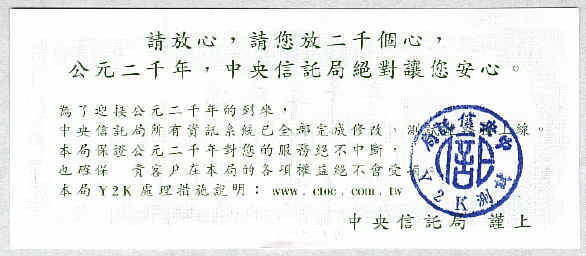 請放心，請您放二千個心，
公元二千年，中央信託局絕對讓您安心。
為了迎接公元二千年的到來，
中央信託局所有資訊系統已全部完成修改、測試 線。
本局保證公元二千年對您的服務絕不中斷，
也確保　貴客戶在本局的各項權益絕不會受
本局Y2K處理措施說明：www.ctoc.com.tw
中央信託局　謹上
中央信託局
Y2K測